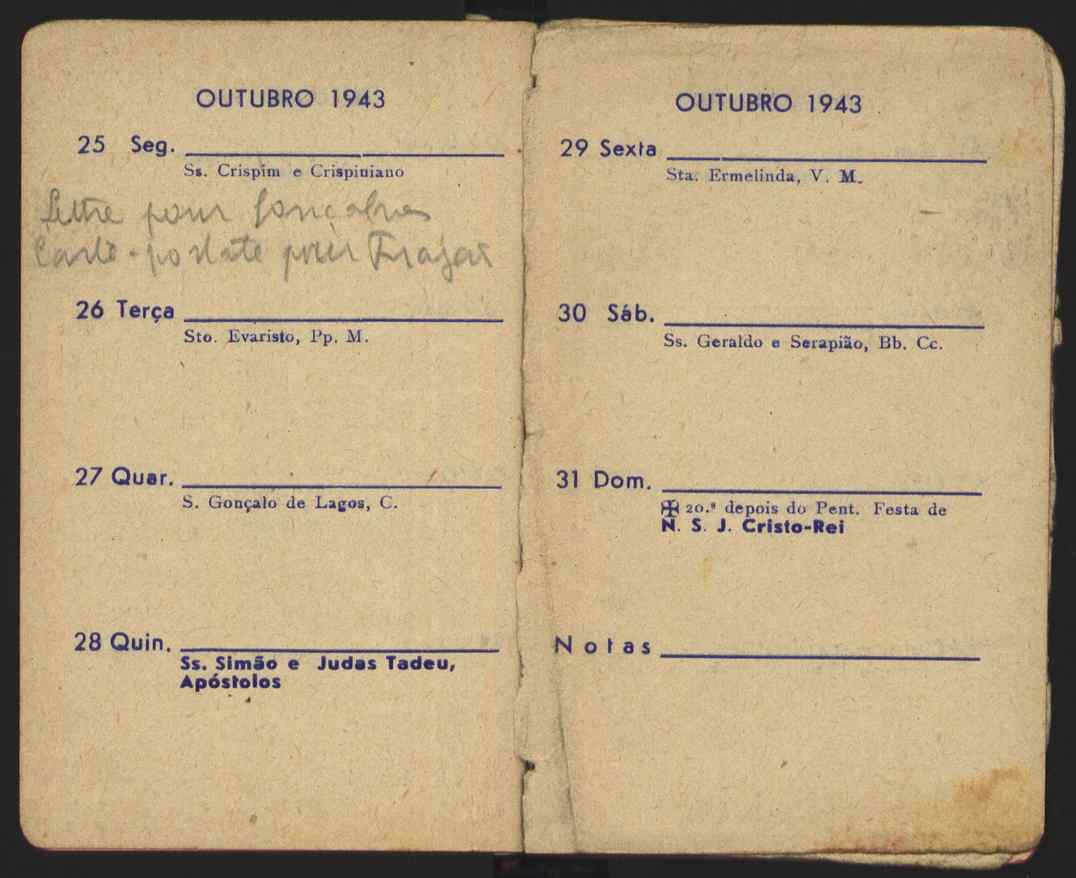 OUTUBRO 1943
25 Seg.
Ss. Crispim e Crispiniano
Lettre pour Gonçalves
Carte-postale pour
26 Terça
Sto. Evaristo, Pp. M.
27 Quar.
S. Gonçalo de Lagos, C.
28 Quin.
Ss. Simão e Judas Tadeu,
Apóstolos
OUTUBRO 1943
29 Sexta
Sta. Ermelinda, V. M.
30 Sáb.
Ss. Geraldo e Serapião, Bb. Cc.
31 Dom.
✠ 20.ª depois do Pent. Festa de
N. S. J. Cristo-Rei
Notas